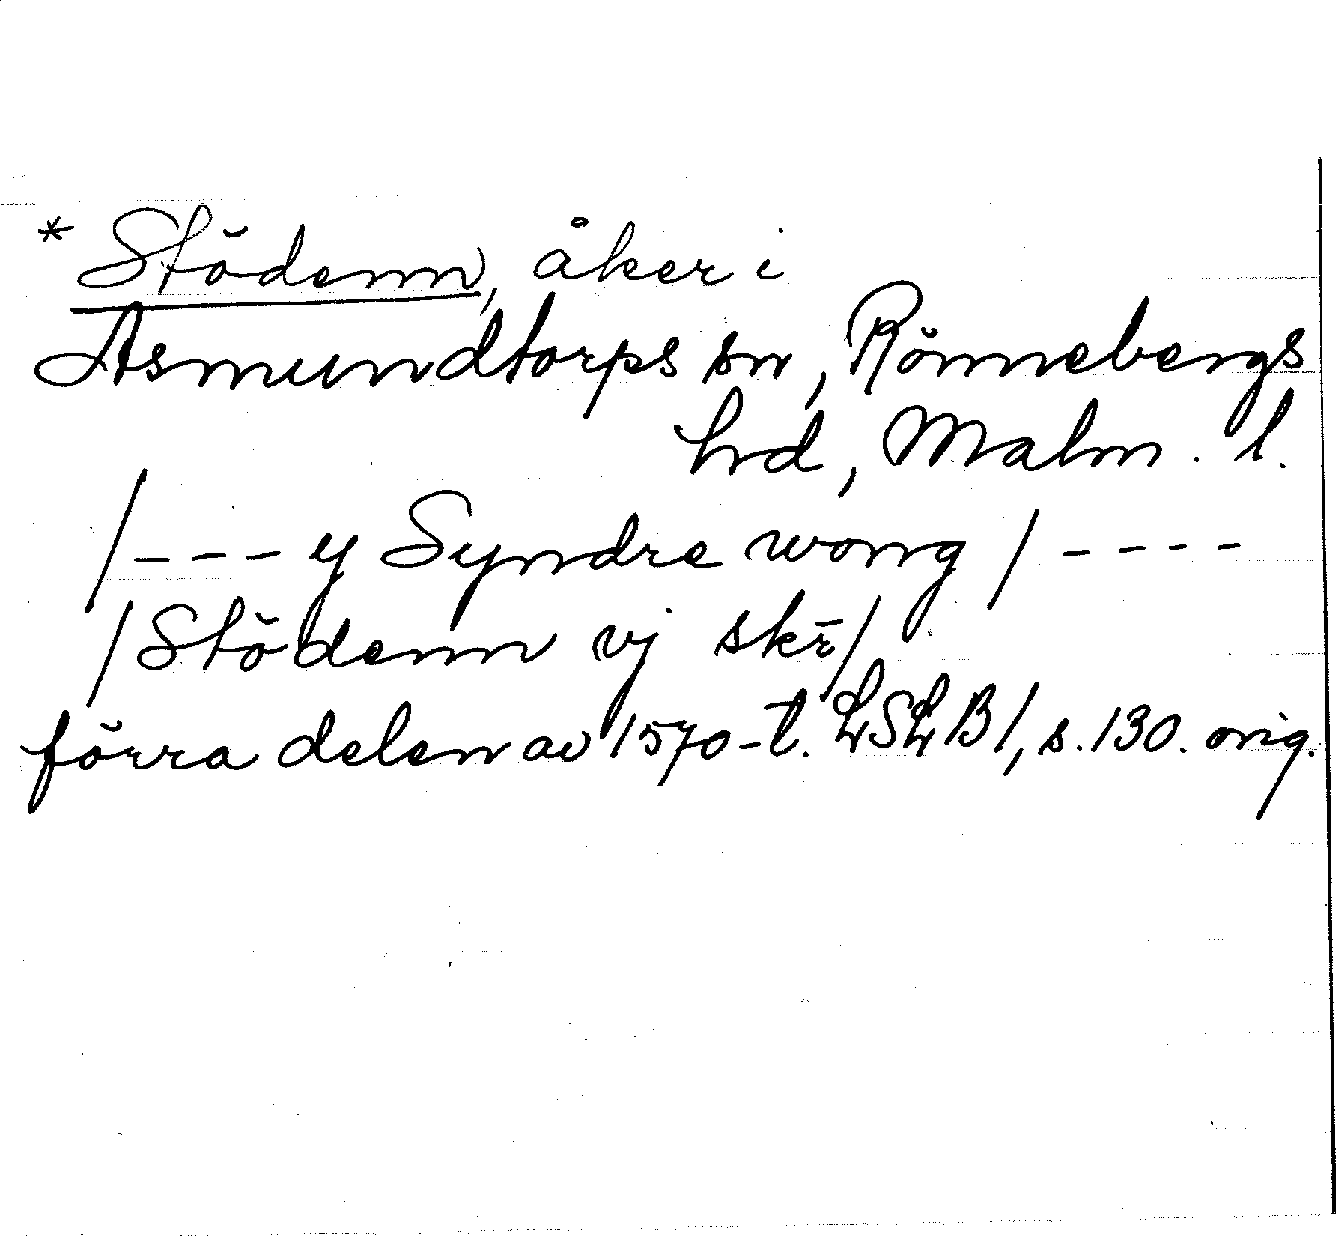 * Stödenn, åker i
Asmundtorps sn, Rönnebergs
hrd, Malm. l.
/--- y Syndre wong /----
/Stödenn vj skr̄/
förra delen av 1570-t. LSLB1, s. 130. orig.